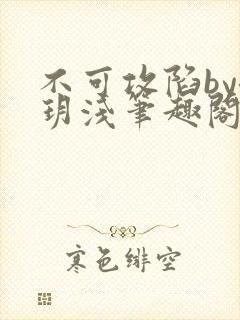 不可攻陷by
玥浅笔趣阁
寒色绯空